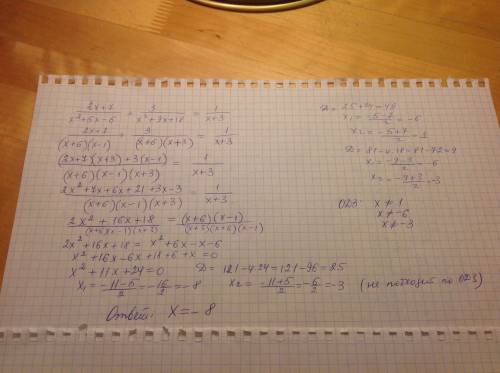 (2x+7)/(x²+5x-6) + 3/(x²+9x+18) = 1/(x+3)
(2x+7)/((x+6)(x-1)) + 3/((x+6)(x+3)) = 1/(x+3)
((2x+7)(x+3)+3(x-1))/((x+6)(x-1)(x+3)) = 1/(x+3)
(2x²+7x+6x+21+3x-3)/((x+6)(x-1)(x+3)) = 1/(x+3)
(2x²+16x+18)/((x+6)(x-1)(x+3)) = ((x+6)(x-1))/((x+3)(x+6)(x-1))
2x²+16x+18 = x²+6x-x-6
x²+16x-6x+18+6+x=0
x²+11x+24=0 D=121-4·24=121-96=25
x₁=(-11-5)/2=-16/2=-8 x₂=(-11+5)/2=-6/2=-3 (не подходит по ОДЗ)
Ответ: x=-8
D=25+24=49
x₁=(-5-7)/2=-6
x₂=(-5+7)/2=1
D=81-4·18=81-72=9
x₁=(-9-3)/2=-6
x₂=(-9+3)/2=-3
ОДЗ: x≠1
x≠-6
x≠-3